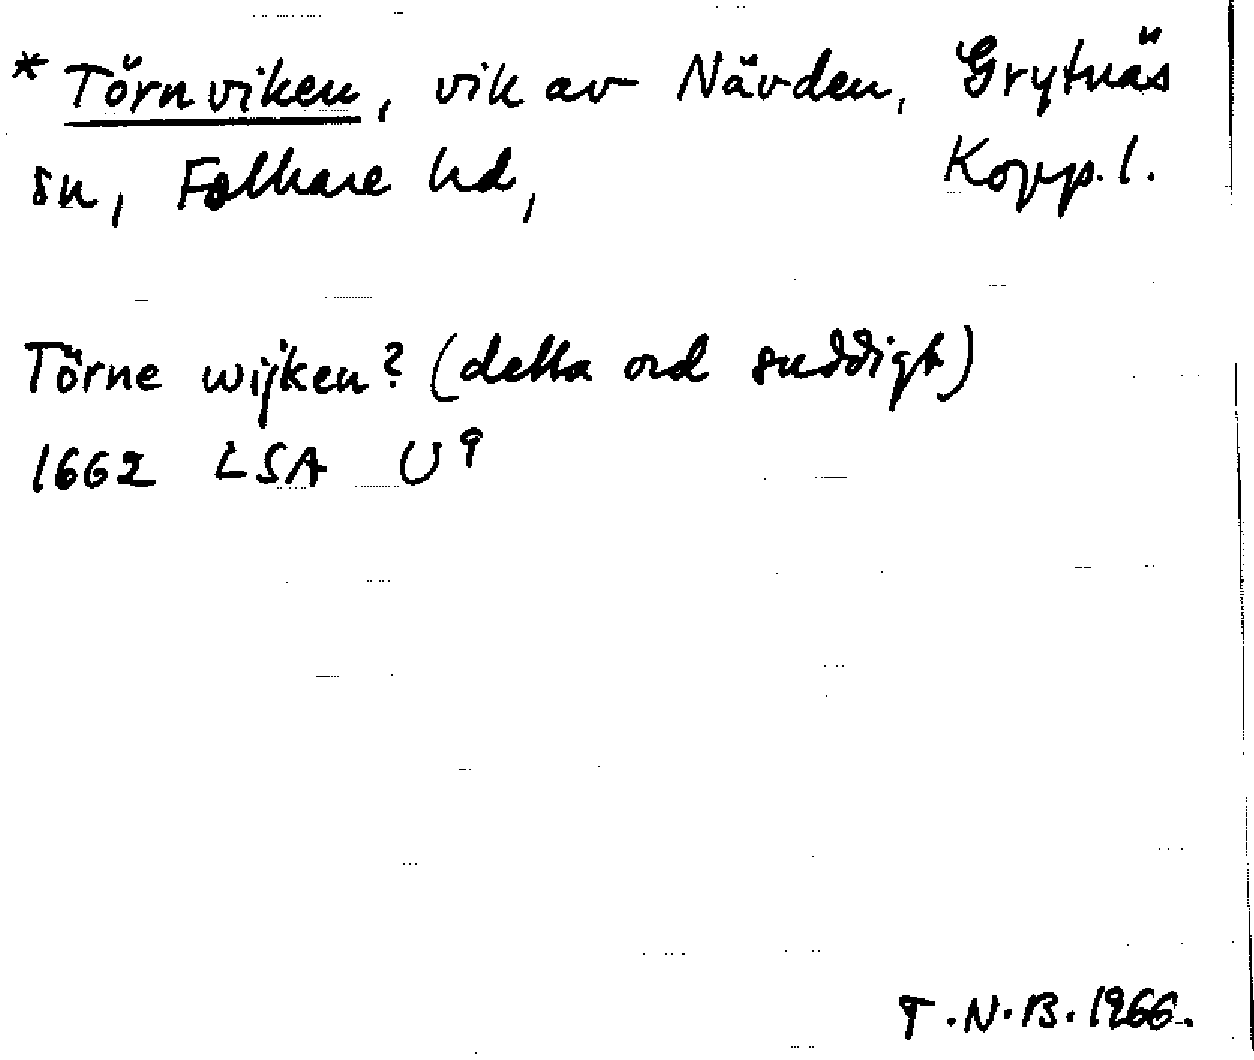 * Törnviken, vik av Nävden, Grytnäs
sn, Folkare hd, Kopp. l.
Törne wijken? (detta ord suddigt)
1662 LSA U⁹
T.N.B. 1966.